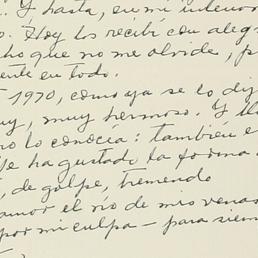 . Y hasta, en mi interior
o. Hoy los recibí con aleg
ho que no me olvide, p
ente en todo.
1970, como ya se lo dij
uy, muy hermoso. Y ll
no lo conocía: también e
fe ha gustado la forma
, de golpe, tremendo
amor el río de mis venas
por mi culpa — para siem